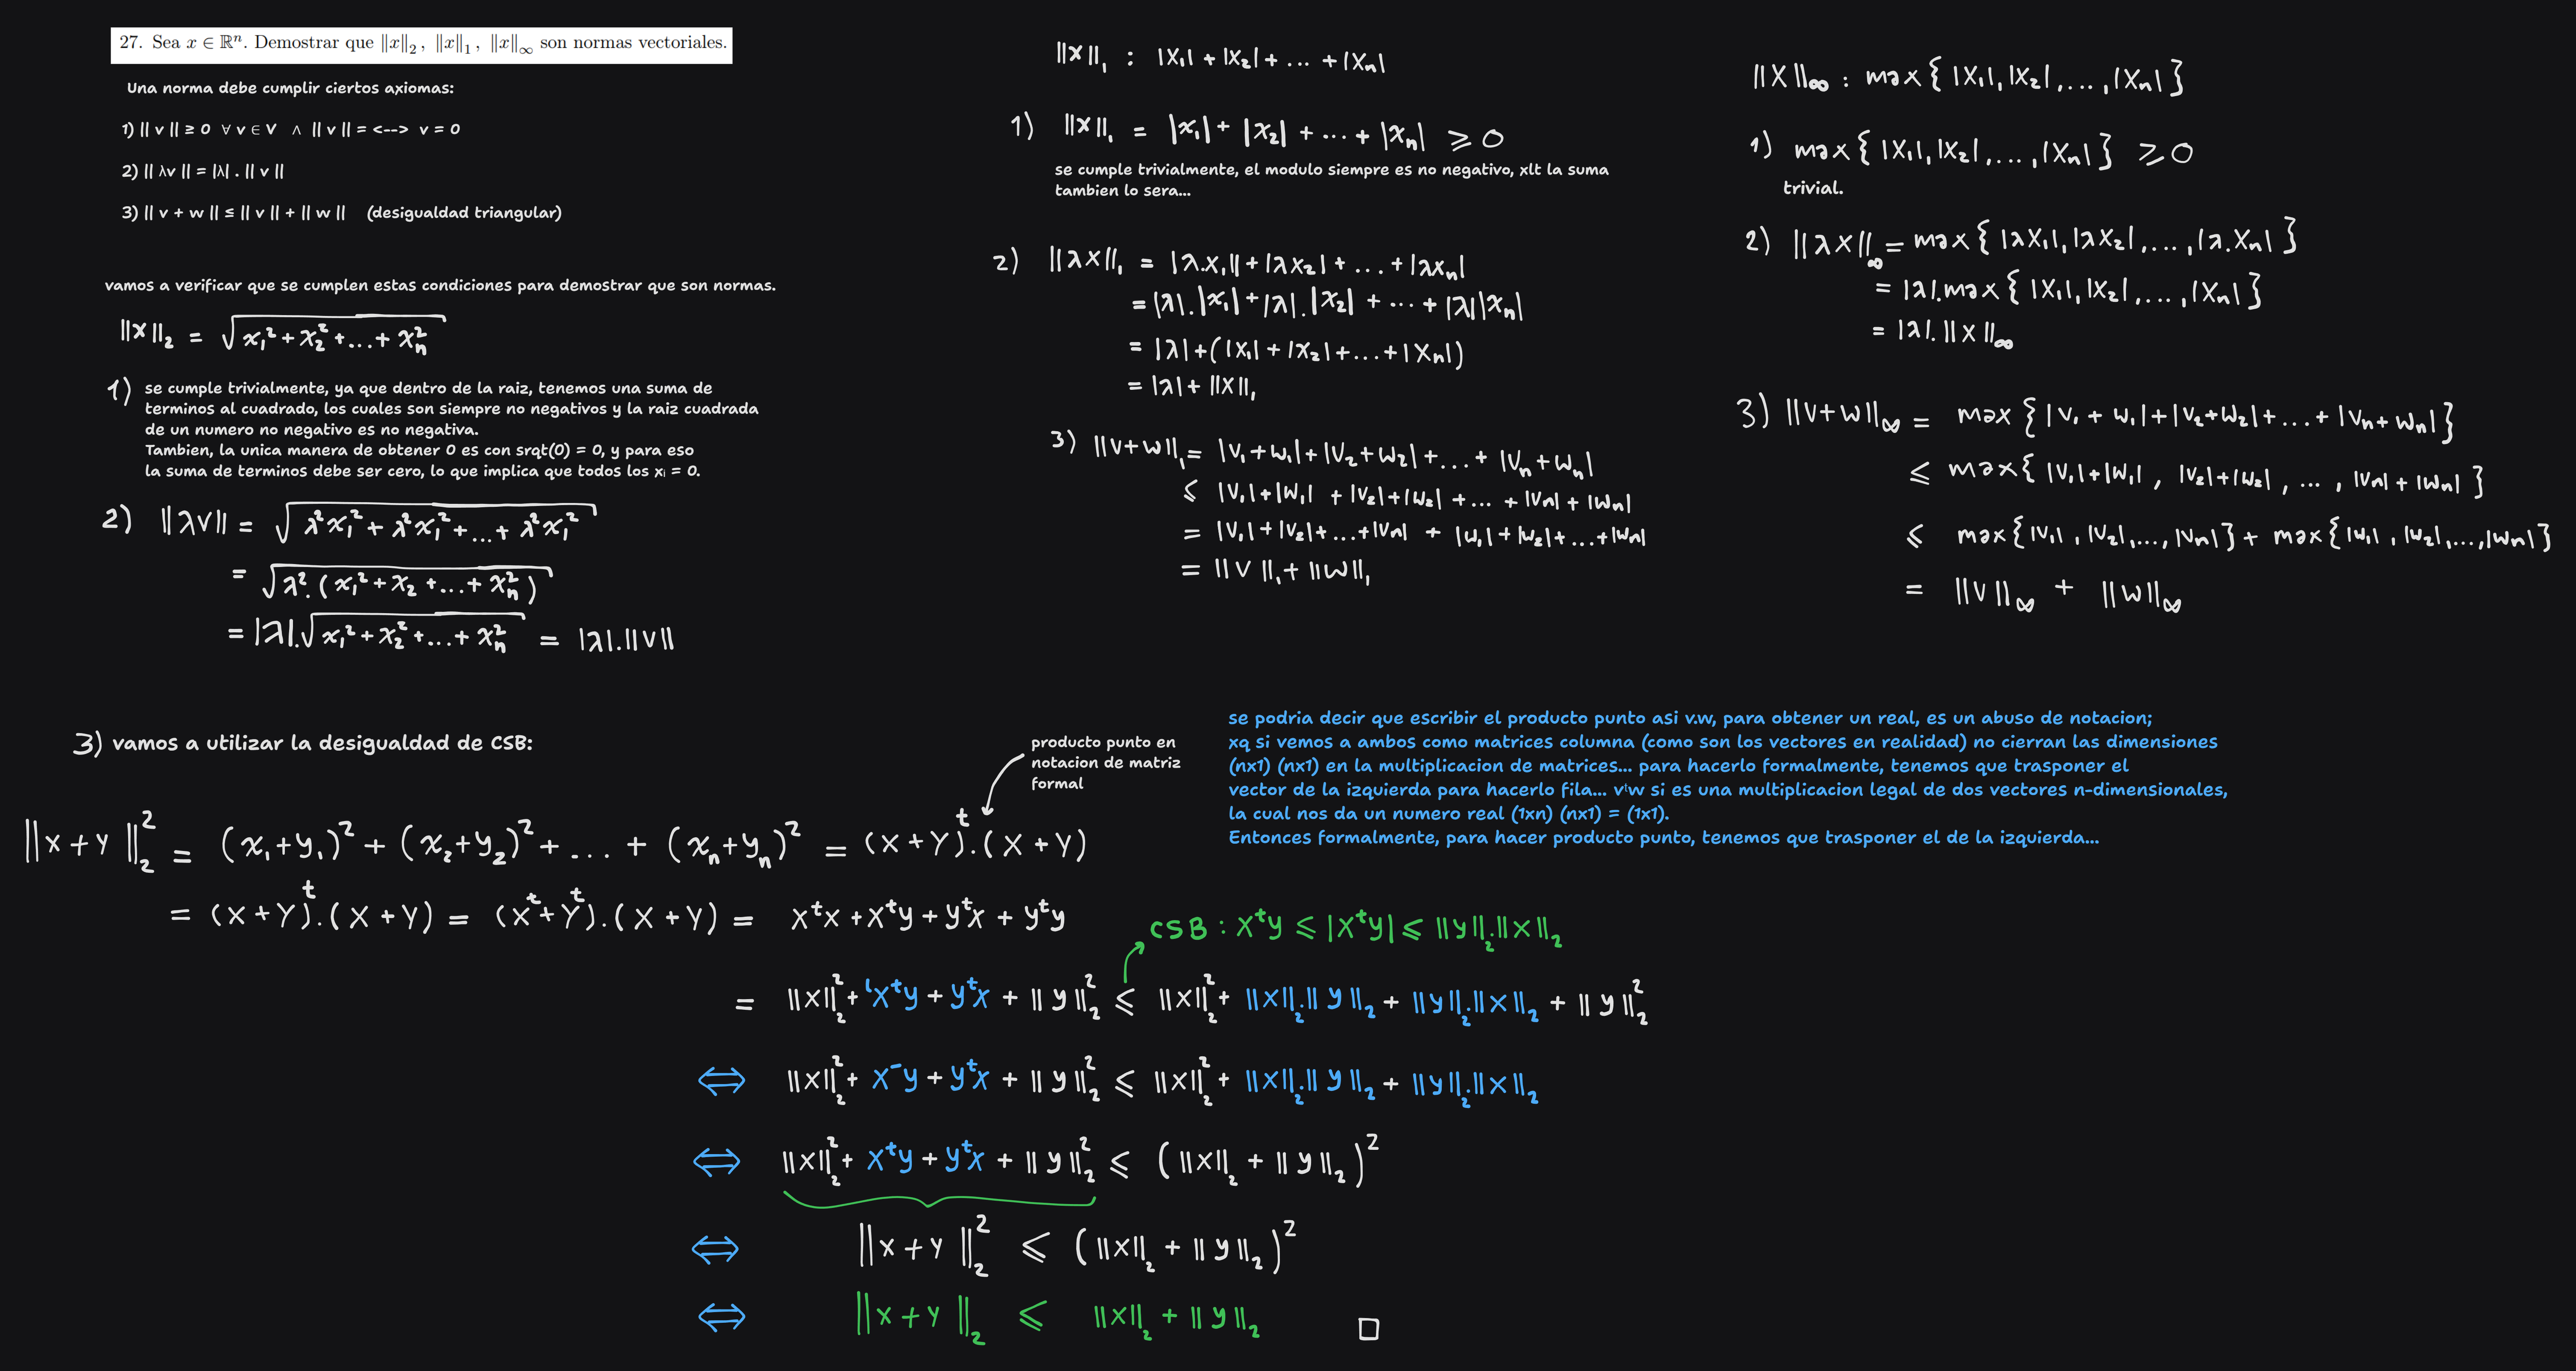 27. Sea x ∈ ℝⁿ. Demostrar que ‖x‖₂, ‖x‖₁, ‖x‖∞ son normas vectoriales.
Una norma debe cumplir ciertos axiomas:
1) || v || ≥ 0 ∀ v ∈ V ∧ || v || = <--> v = 0
2) || λv || = |λ| . || v ||
3) || v + w || ≤ || v || + || w || (desigualdad triangular)
vamos a verificar que se cumplen estas condiciones para demostrar que son normas.
‖x‖₂ = √(x₁² + x₂² + ... + xₙ²)
1) se cumple trivialmente, ya que dentro de la raiz, tenemos una suma de
terminos al cuadrado, los cuales son siempre no negativos y la raiz cuadrada
de un numero no negativo es no negativa.
Tambien, la unica manera de obtener 0 es con srqt(0) = 0, y para eso
la suma de terminos debe ser cero, lo que implica que todos los xᵢ = 0.
2) ‖λv‖ = √(λ²x₁² + λ²x₁² + ... + λ²x₁²)
= √(λ².(x₁² + x₂ + ... + xₙ²))
= |λ|.√(x₁² + x₂² + ... + xₙ²) = |λ|.‖v‖
‖x‖₁ : |x₁| + |x₂| + ... + |xₙ|
1) ‖x‖₁ = |x₁| + |x₂| + ... + |xₙ| ⩾ 0
se cumple trivialmente, el modulo siempre es no negativo, xlt la suma
tambien lo sera...
2) ‖λx‖₁ = |λ.x₁|| + |λx₂| + ... + |λxₙ|
= |λ|.|x₁| + |λ|.|x₂| + ... + |λ||xₙ|
= |λ| + (|x₁| + |x₂| + ... + |xₙ|)
= |λ| + ‖x‖₁
3) ‖v+w‖₁ = |v₁+w₁| + |v₂+w₂| + ... + |vₙ+wₙ|
⩽ |v₁|+|w₁| + |v₂|+|w₂| + ... + |vₙ| + |wₙ|
= |v₁|+|v₂|+...+|vₙ| + |w₁|+|w₂|+...+|wₙ|
= ‖v‖₁ + ‖w‖₁
‖x‖∞ : max{ |x₁|, |x₂|, ..., |xₙ| }
1) max{ |x₁|, |x₂|, ..., |xₙ| } ⩾ 0
trivial.
2) ‖λx‖∞ = max{ |λx₁|, |λx₂|, ..., |λ.xₙ| }
= |λ|.max{ |x₁|, |x₂|, ..., |xₙ| }
= |λ|.‖x‖∞
3) ‖v+w‖∞ = max{ |v₁+w₁|+|v₂+w₂|+...+|vₙ+wₙ| }
⩽ max{ |v₁|+|w₁| , |v₂|+|w₂| , ... , |vₙ|+|wₙ| }
⩽ max{ |v₁| , |v₂|, ..., |vₙ| } + max{ |w₁| , |w₂|, ..., |wₙ| }
= ‖v‖∞ + ‖w‖∞
3) vamos a utilizar la desigualdad de CSB:
producto punto en
notacion de matriz
formal
se podria decir que escribir el producto punto asi v.w, para obtener un real, es un abuso de notacion;
xq si vemos a ambos como matrices columna (como son los vectores en realidad) no cierran las dimensiones
(nx1) (nx1) en la multiplicacion de matrices... para hacerlo formalmente, tenemos que trasponer el
vector de la izquierda para hacerlo fila... vᵗw si es una multiplicacion legal de dos vectores n-dimensionales,
la cual nos da un numero real (1xn) (nx1) = (1x1).
Entonces formalmente, para hacer producto punto, tenemos que trasponer el de la izquierda...
‖x+y‖₂² = (x₁+y₁)² + (x₂+y₂)² + ... + (xₙ+yₙ)² = (x+y)ᵗ.(x+y)
= (x+y)ᵗ.(x+y) = (xᵗ+yᵗ).(x+y) = xᵗx + xᵗy + yᵗx + yᵗy
CSB : xᵗy ⩽ |xᵗy| ⩽ ‖y‖₂.‖x‖₂
= ‖x‖₂² + xᵗy + yᵗx + ‖y‖₂² ⩽ ‖x‖₂² + ‖x‖₂.‖y‖₂ + ‖y‖₂.‖x‖₂ + ‖y‖₂²
⟺ ‖x‖₂² + x⁻y + yᵗx + ‖y‖₂² ⩽ ‖x‖₂² + ‖x‖₂.‖y‖₂ + ‖y‖₂.‖x‖₂
⟺ ‖x‖₂² + xᵗy + yᵗx + ‖y‖₂² ⩽ (‖x‖₂ + ‖y‖₂)²
⟺ ‖x+y‖₂² ⩽ (‖x‖₂ + ‖y‖₂)²
⟺ ‖x+y‖₂ ⩽ ‖x‖₂ + ‖y‖₂ □